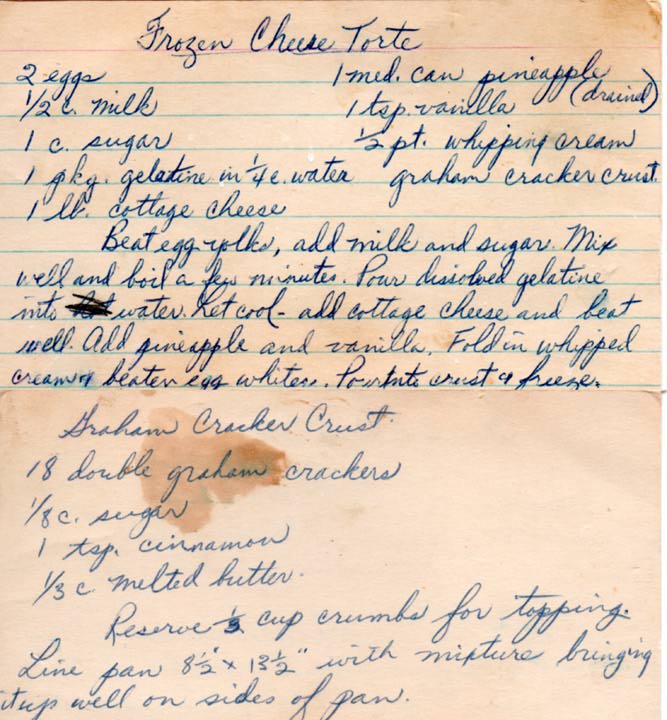 Frozen Cheese Torte
2 eggs 1 med. can pineapple
1/2 c. milk 1 tsp. vanilla (drained)
1 c. sugar 1/2 pt. whipping cream
1 pkg. gelatine in 1/4 c. water graham cracker crust.
1 lb. cottage cheese
Beat egg yolks, add milk and sugar. Mix
well and boil a few minutes. Pour dissolved gelatine
into water. Let cool - add cottage cheese and beat
well. Add pineapple and vanilla. Fold in whipped
cream & beaten egg whites. Pour into crust & freeze.
Graham Cracker Crust.
18 double graham crackers
1/8 c. sugar
1 tsp. cinnamon
1/3 c. melted butter.
Reserve 1/3 cup crumbs for topping.
Line pan 8 1/2" x 13 1/2" with mixture bringing
it up well on sides of pan.